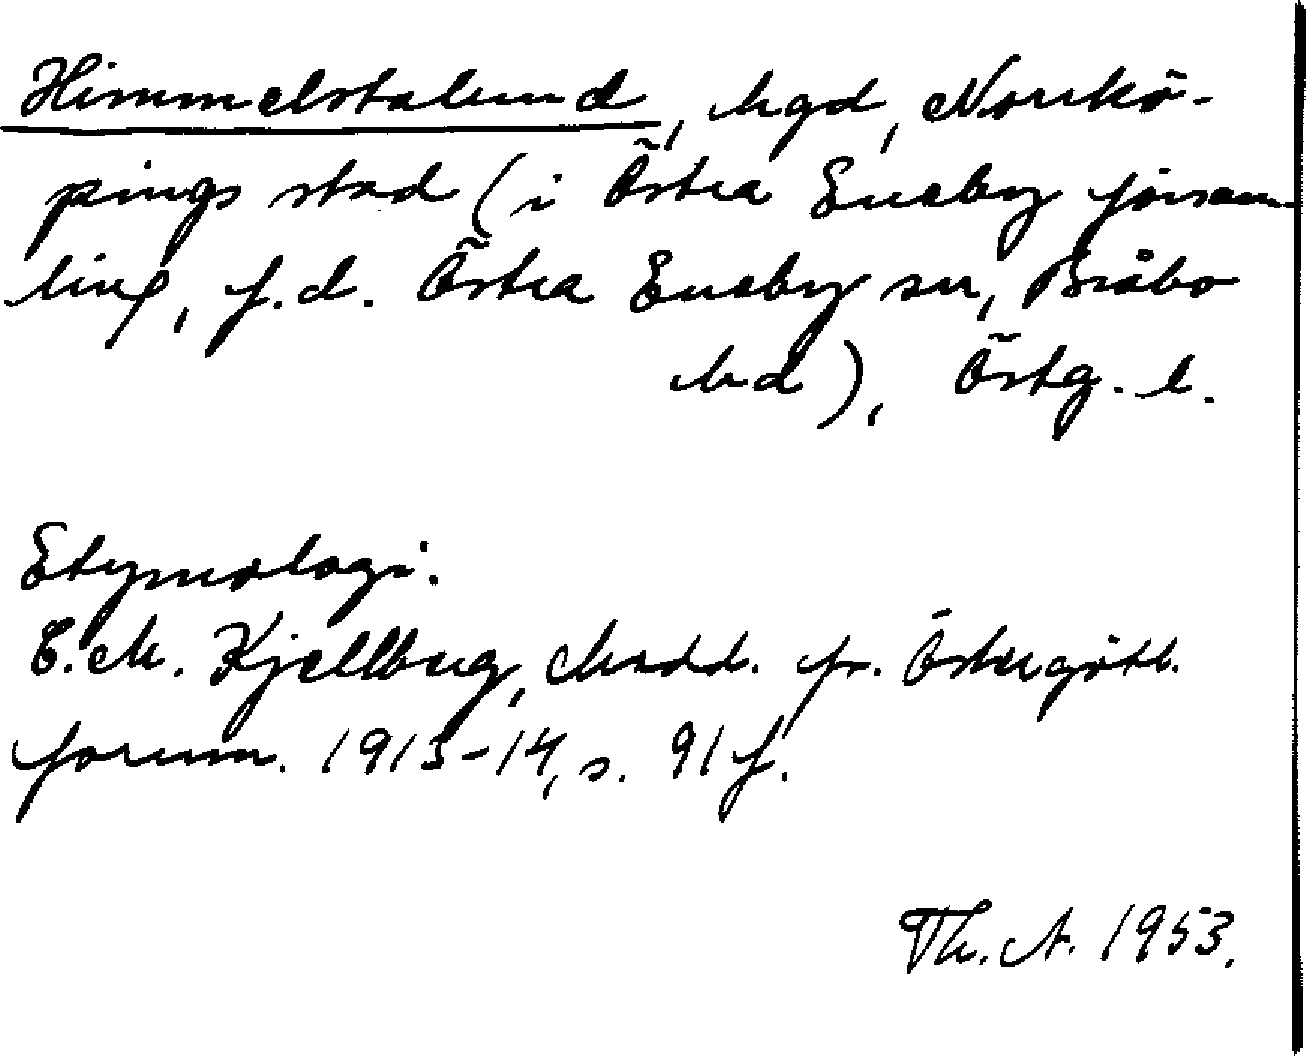 Himmelstalund, hgd, Norrkö-
pings stad (i Östra Eneby försam-
ling, f.d. Östra Eneby sn, Bråbo
hd), Östg. l.
Etymologi.
C. M. Kjellberg, Medd. fr. Östergötl.
fornm. 1913-14, s. 91 f.
Th. A. 1953.